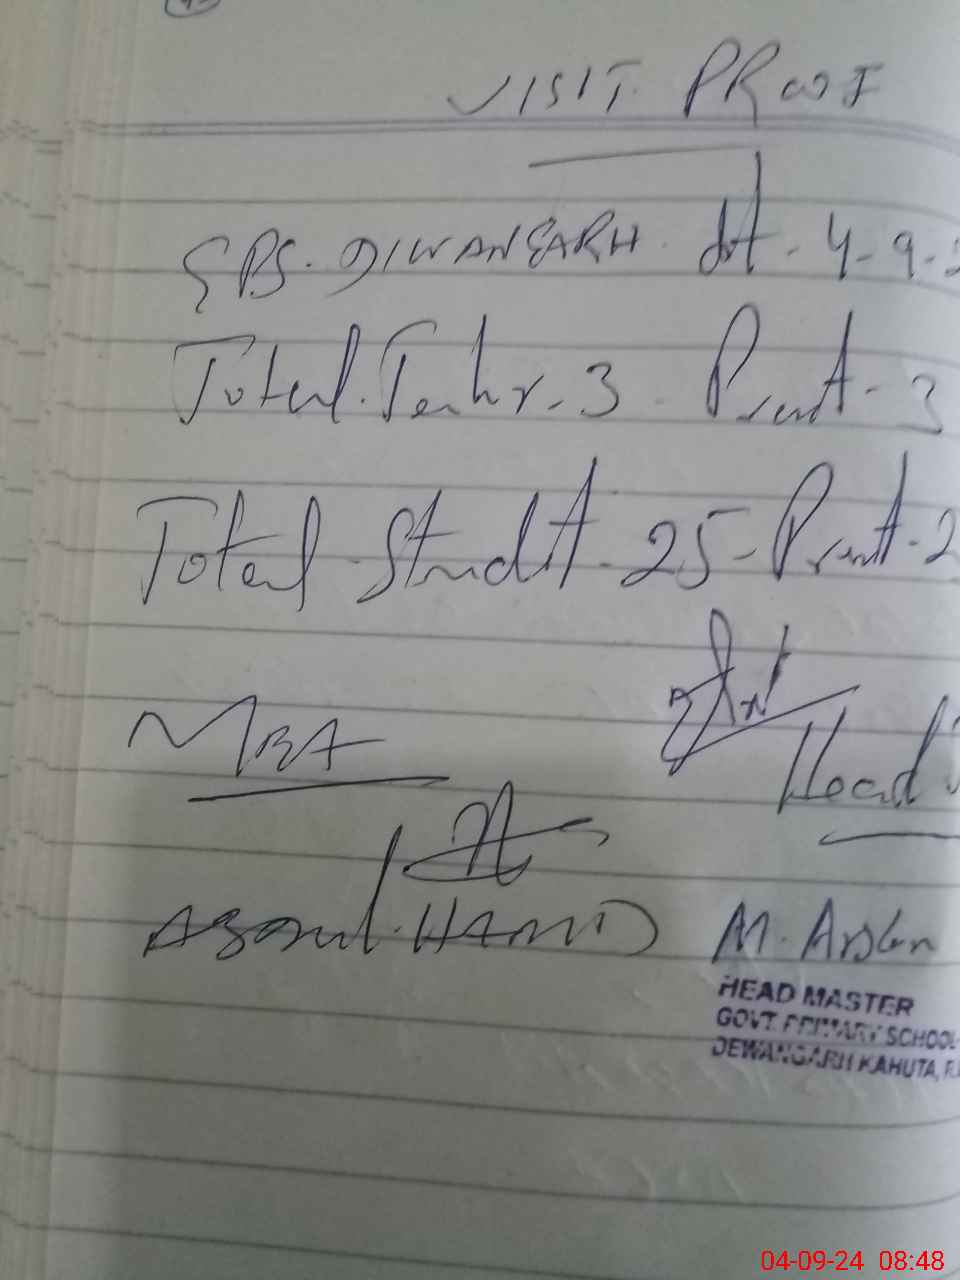 VISIT PROOF
GPS. DIWANGARH. dt. 4-9-2
Total. Techr. 3. Prent - 3
Total Studt. 25 - Prent. 2
Head
MEA
Abdul. HAMID M. Arslan
HEAD MASTER
GOVT. PRIMARY SCHOOL
DEWANGARH KAHUTA, R
04-09-24 08:48